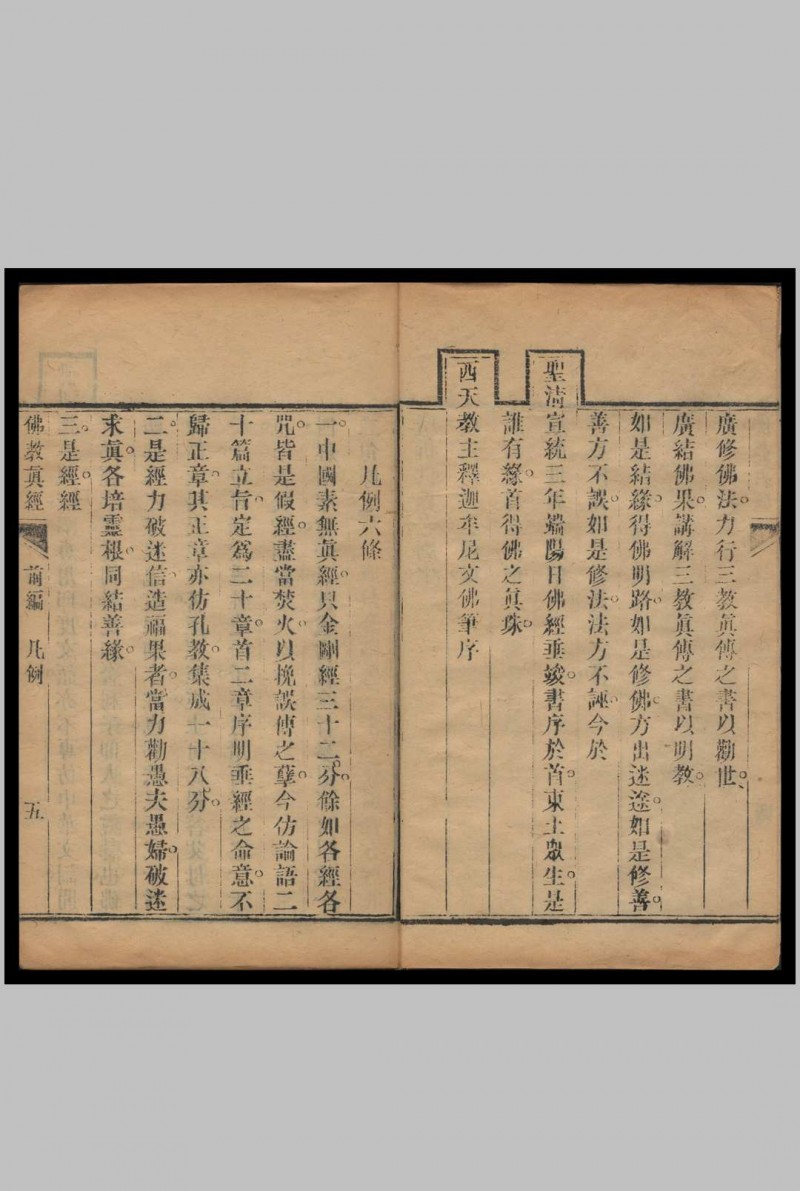 廣修佛法。力行三教眞傳之書以勸世。
廣結佛果。講解三教眞傳之書以明教。
如是結緣。得佛明路。如是修佛。方出迷途。如是修善。
善方不誤。如是修法。法方不誣。今於
聖清宣統三年端陽日佛經垂竣。書序於首。東土眾生。是
誰有緣。首得佛之眞珠。
西天教主釋迦牟尼文佛筆序
凡例六條
一。中國素無眞經。只金剛經三十二分。餘如各經各
咒。皆是假經。盡當焚火。以挽誤傳之孽。今仿論語二
十篇立旨。定為二十章。首二章序明垂經之命意。不
歸正章。其正章亦仿孔教集成一十八分。
二。是經力破迷信。造福果者。當力勸愚夫愚婦。破迷
求眞。各培靈根。同結善緣。
三。是經。經
佛教眞經 前編 凡例 五